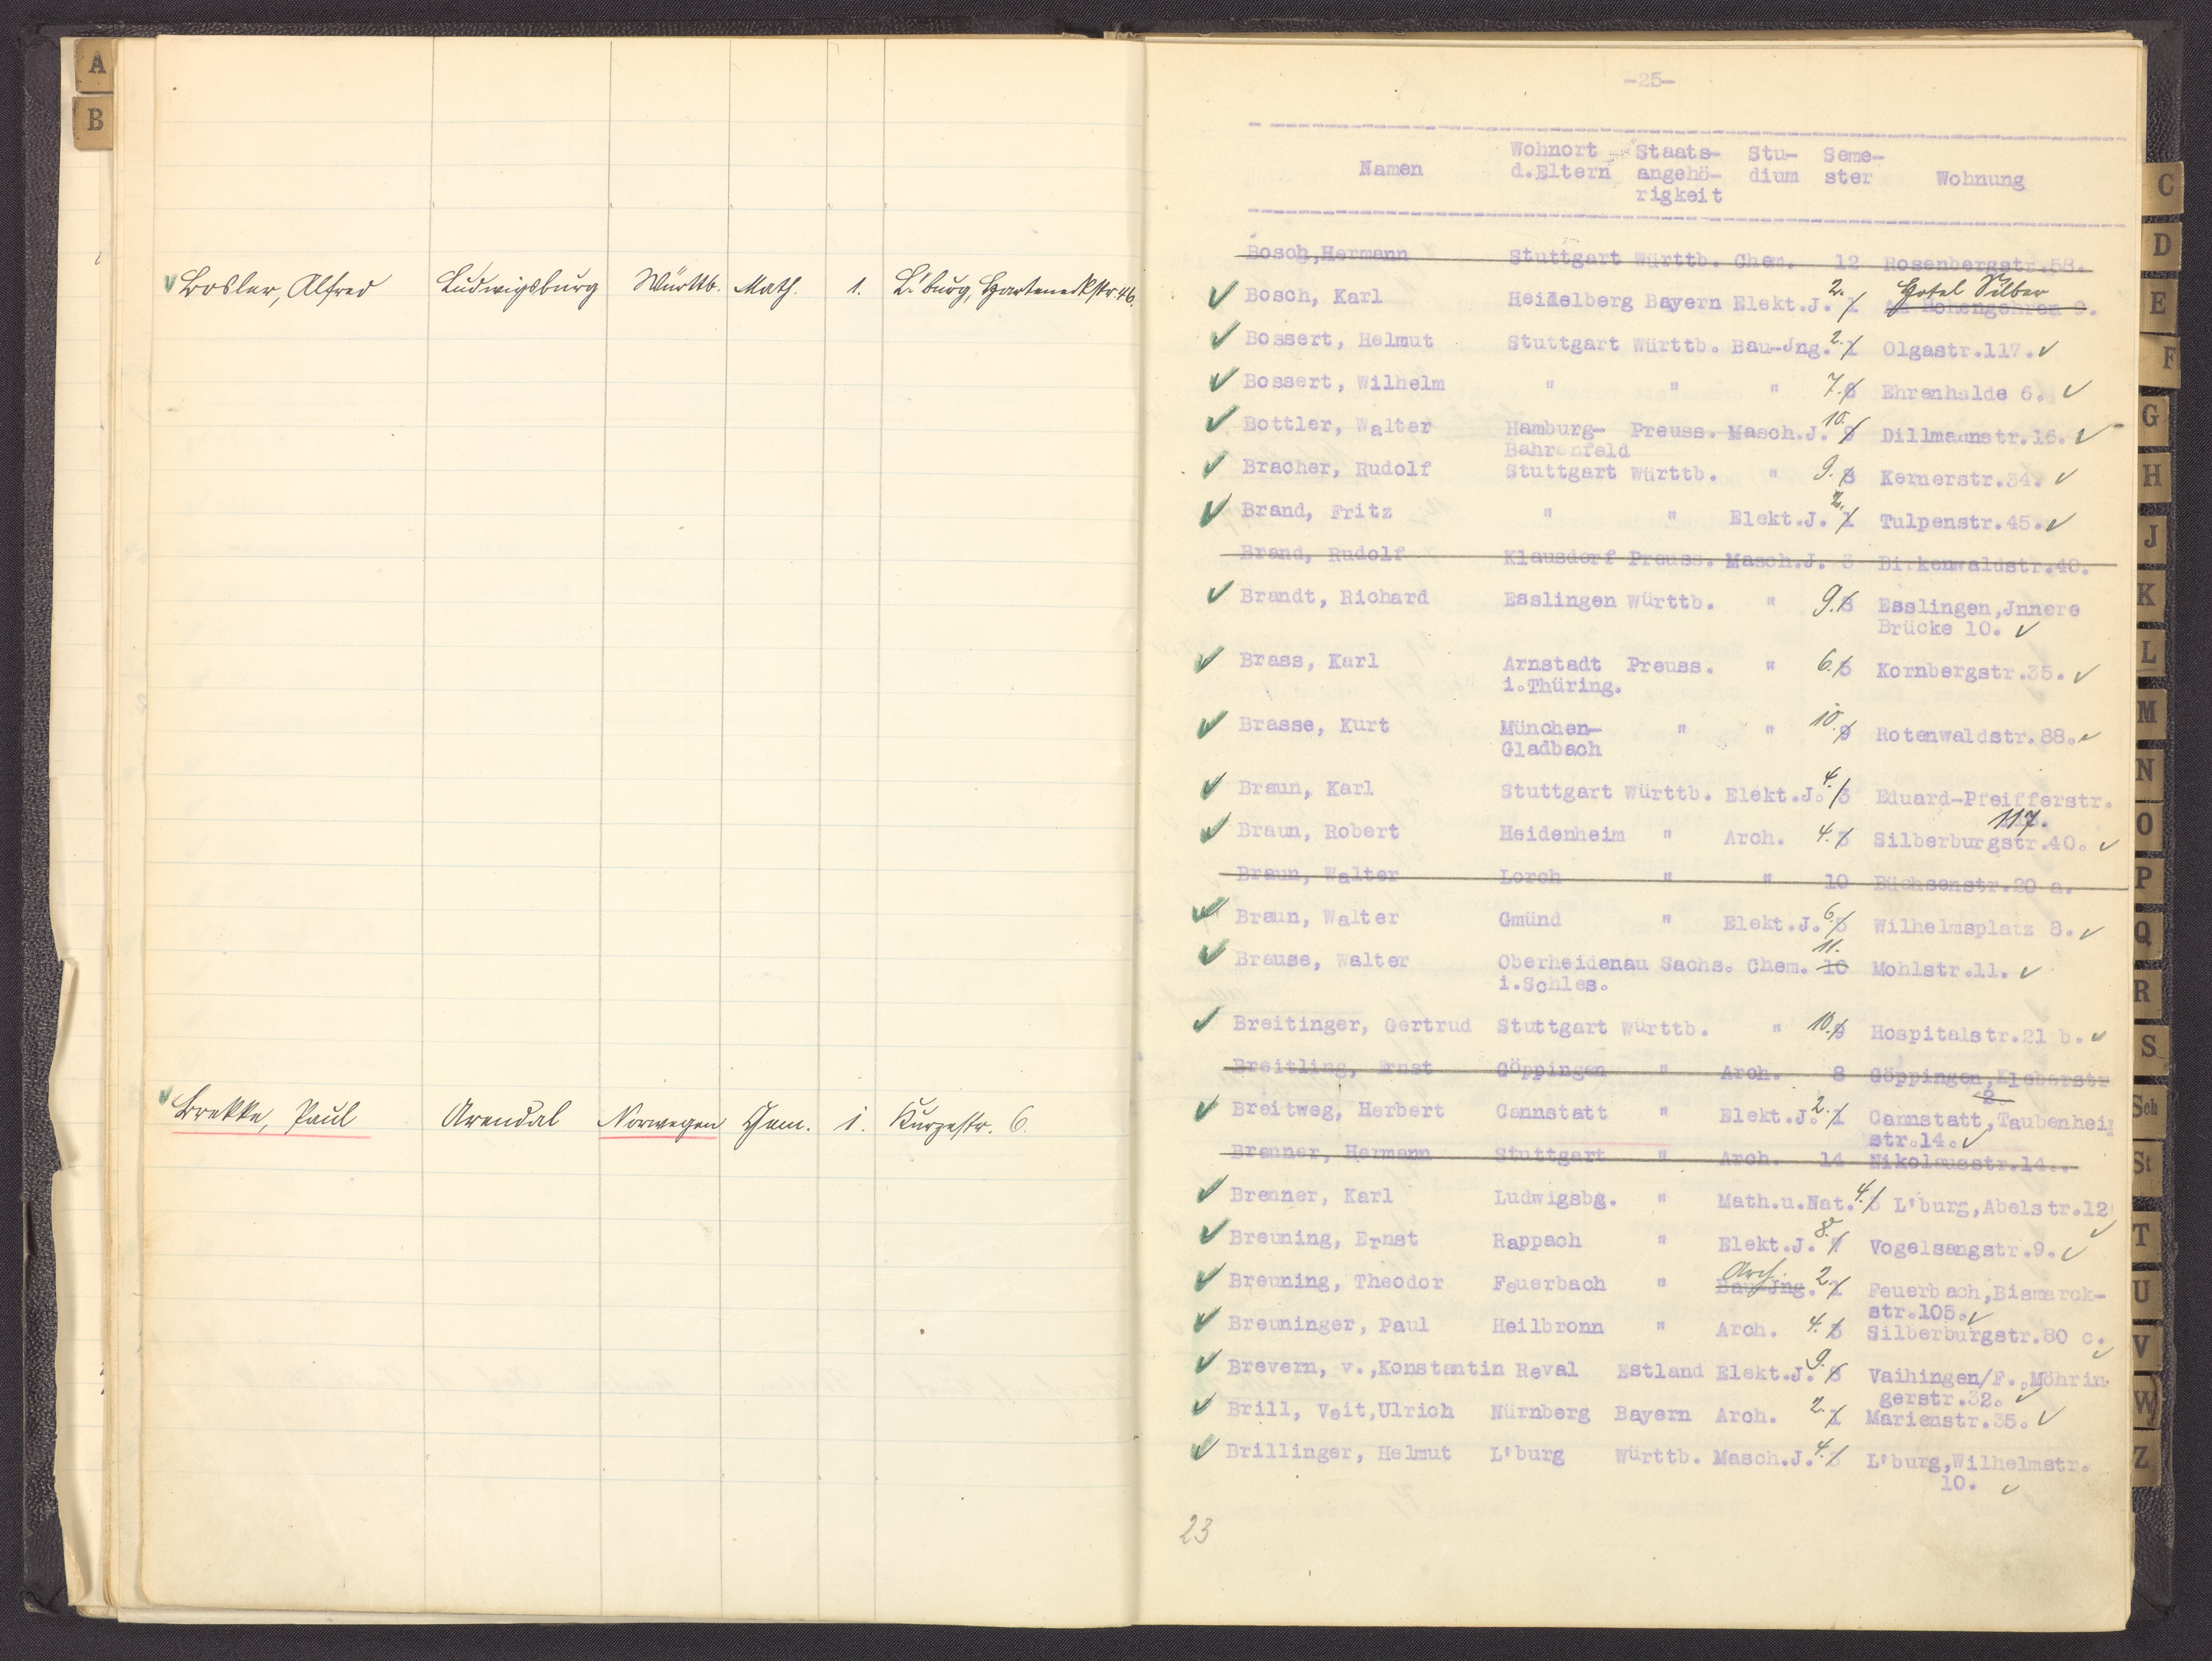 A
B
Bosler, Alfred Ludwigsburg Württb. Math. 1. L'burg, Harteneckstr. 46.
Brekke, Paul Arendal Norwegen Chem. 1. Kurzestr. 6.
-25-
Namen Wohnort d.Eltern Staats-angehö-rigkeit Stu-dium Seme-ster Wohnung
Bosch,Hermann Stuttgart Württb. Chem. 12 Rosenbergstr.58.
Hotel Silber
Bosch, Karl Heidelberg Bayern Elekt.J. 2. 1 Am Hohengehren 9.
Bossert, Helmut Stuttgart Württb. Bau-Jng. 2. 1 Olgastr.117.
Bossert, Wilhelm " " " 7. 6 Ehrenhalde 6.
Bottler, Walter Hamburg- Preuss. Masch.J. 10. 9 Dillmannstr.16.
Bahrenfeld
Bracher, Rudolf Stuttgart Württb. " 9. 8 Kernerstr.34.
Brand, Fritz " " Elekt.J. 2. 1 Tulpenstr.45.
Brand, Rudolf Klausdorf Preuss. Masch.J. 3 Birkenwaldstr.40.
Brandt, Richard Esslingen Württb. " 9. 8 Esslingen,Jnnere
Brücke 10.
Brass, Karl Arnstadt Preuss. " 6. 5 Kornbergstr.35.
i.Thüring.
Brasse, Kurt München- " " 10. 9 Rotenwaldstr.88.
Gladbach
Braun, Karl Stuttgart Württb. Elekt.J. 4. 3 Eduard-Pfeifferstr.
117.
Braun, Robert Heidenheim " Arch. 4. 3 Silberburgstr.40.
Braun, Walter Lorch " " 10 Büchsenstr.20 a.
Braun, Walter Gmünd " Elekt.J. 6. 5 Wilhelmsplatz 8.
Brause, Walter Oberheidenau Sachs. Chem. 11. 10 Mohlstr.11.
i.Schles.
Breitinger, Gertrud Stuttgart Württb. " 10. 9 Hospitalstr.21 b.
Breitling, Ernst Göppingen " Arch. 8 Göppingen,Kleberstr
2
Breitweg, Herbert Cannstatt " Elekt.J. 2. 1 Cannstatt,Taubenheim
str.14.
Brenner, Hermann Stuttgart " Arch. 14 Nikolausstr.14..
Brenner, Karl Ludwigsbg. " Math.u.Nat. 4. 3 L'burg,Abelstr.12
Breuning, Ernst Rappach " Elekt.J. 8. 7 Vogelsangstr.9.
Arch.
Breuning, Theodor Feuerbach " Bau-Jng. 2. 1 Feuerbach,Bismarck-
str.105.
Breuninger, Paul Heilbronn " Arch. 4. 3 Silberburgstr.80 c.
Brevern, v.,Konstantin Reval Estland Elekt.J. 9. 8 Vaihingen/F.,Möhrin
gerstr.32.
Brill, Veit,Ulrich Nürnberg Bayern Arch. 2. 1 Marienstr.35.
Brillinger, Helmut L'burg Württb. Masch.J. 4. 3 L'burg,Wilhelmstr.
10.
23
C
D
E
F
G
H
J
K
L
M
N
O
P
Q
R
S
Sch
St
T
U
V
W
Z